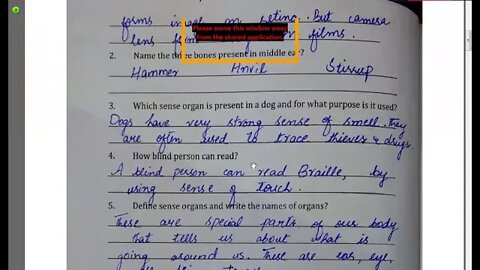 forms image on retina. But camera
Please move this window away
from the shared application
lens films.
2. Name the three bones present in middle ear?
Hammer Anvil Stirrup
3. Which sense organ is present in a dog and for what purpose is it used?
Dogs have very strong sense of smell. They
are often used to trace thieves & drugs.
4. How blind person can read?
A blind person can read Braille, by
using sense of touch.
5. Define sense organs and write the names of organs?
These are special parts of our body
that tells us about what is
going around us. These are ear, eye,